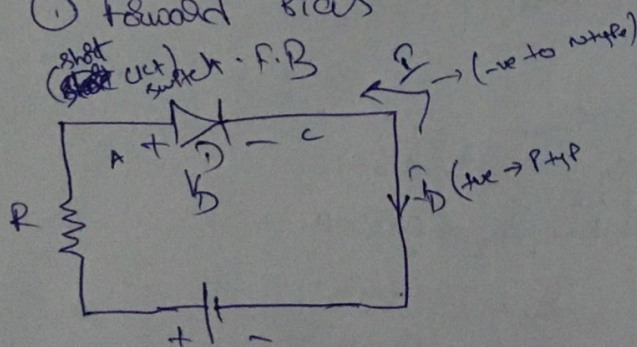 ① Forward Bias
(short ckt) switch . F.B
I → (-ve to n-type)
A + D - C
VD
ID (+ve → P typ
R
+ -